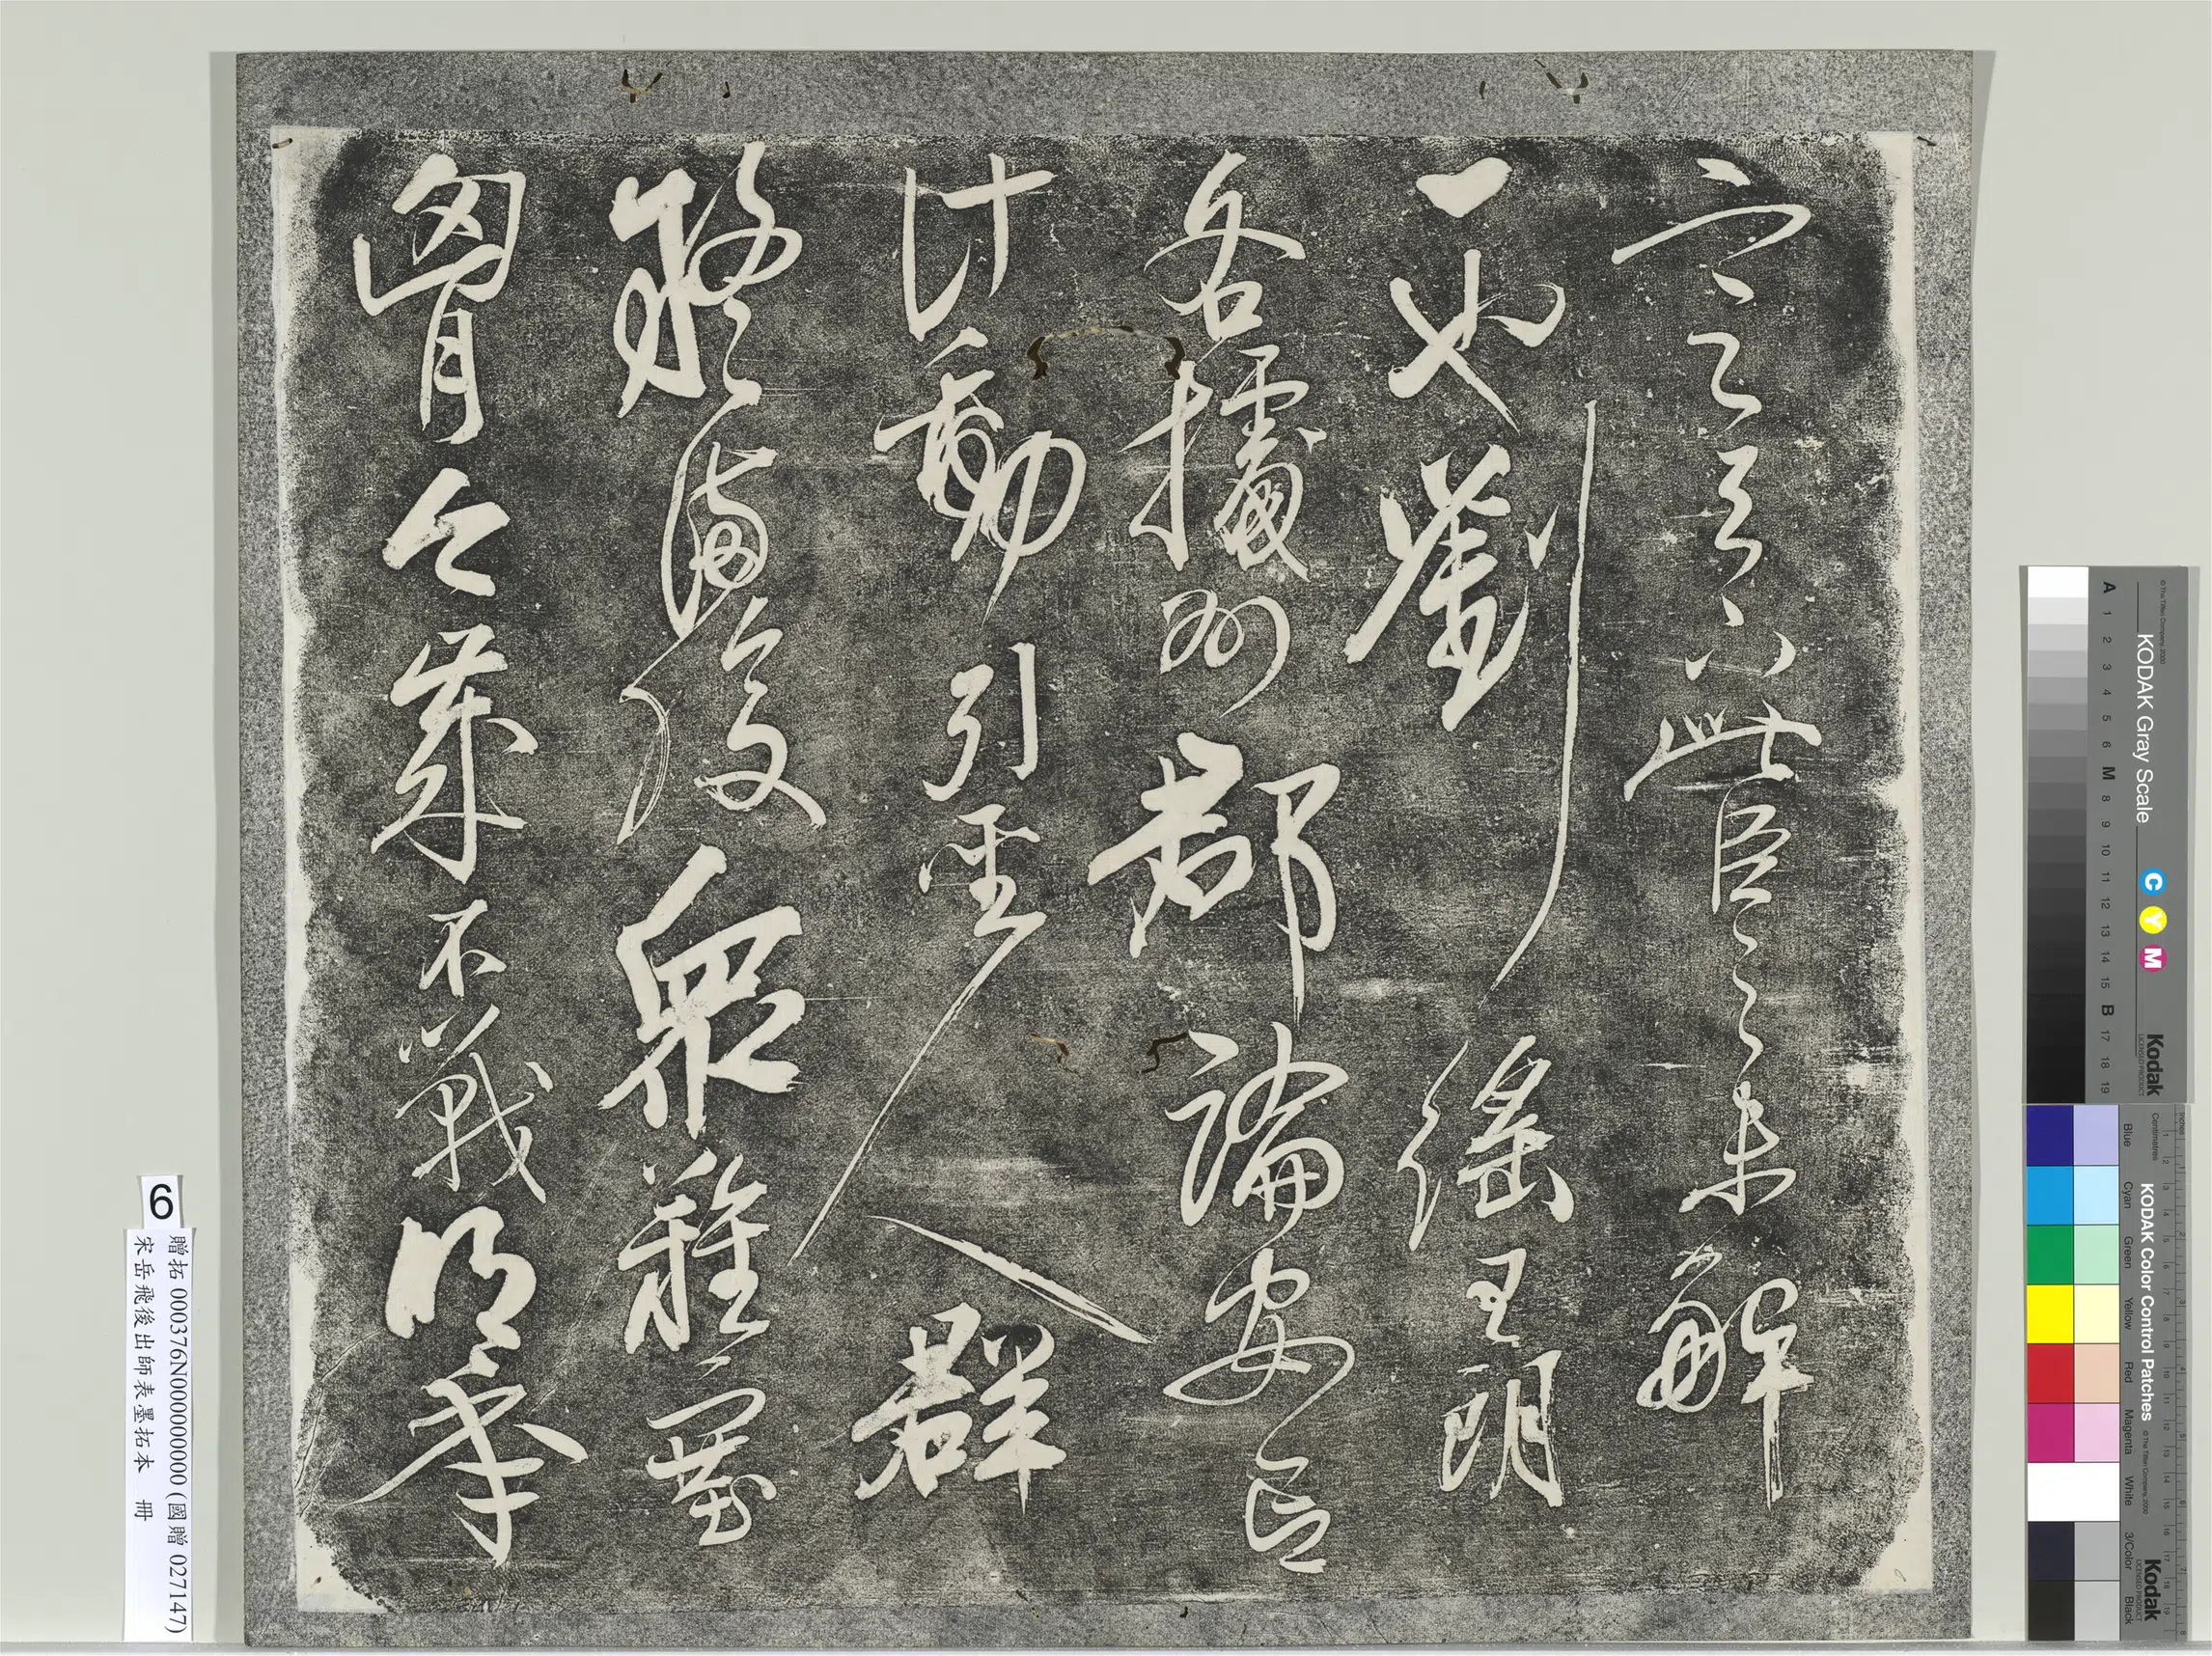 定天下此臣之未解
一也劉繇王朗
各據州郡論安言
計動引聖人群
疑滿腹眾難塞
胷今歲不戰明年
6
贈拓 000376N000000000 (國贈 027147)
宋岳飛後出師表墨拓本 冊
KODAK Gray Scale
C Y M
Kodak
A 1 2 3 4 5 6 M 8 9 10 11 12 13 14 15 B 17 18 19
KODAK Color Control Patches
Kodak
Blue Cyan Green Yellow Red Magenta White 3/Color Black